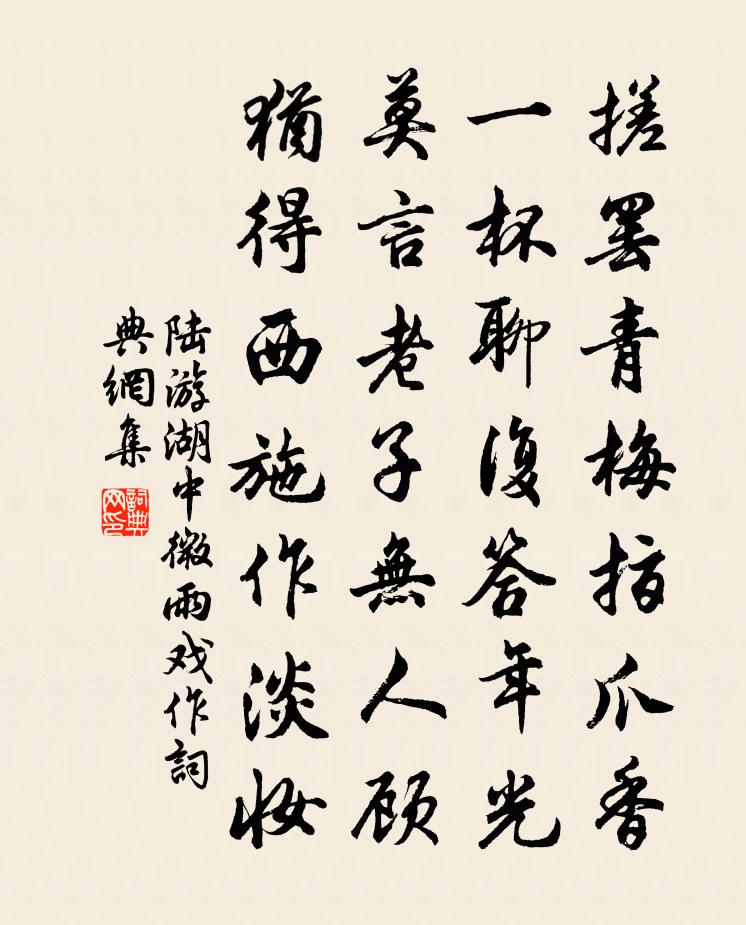 搓罢青梅指爪香
一杯聊復答年光
莫言老子無人顾
猶得西施作淡妝
陆游湖中微雨戏作詞
典網集
詞典网印